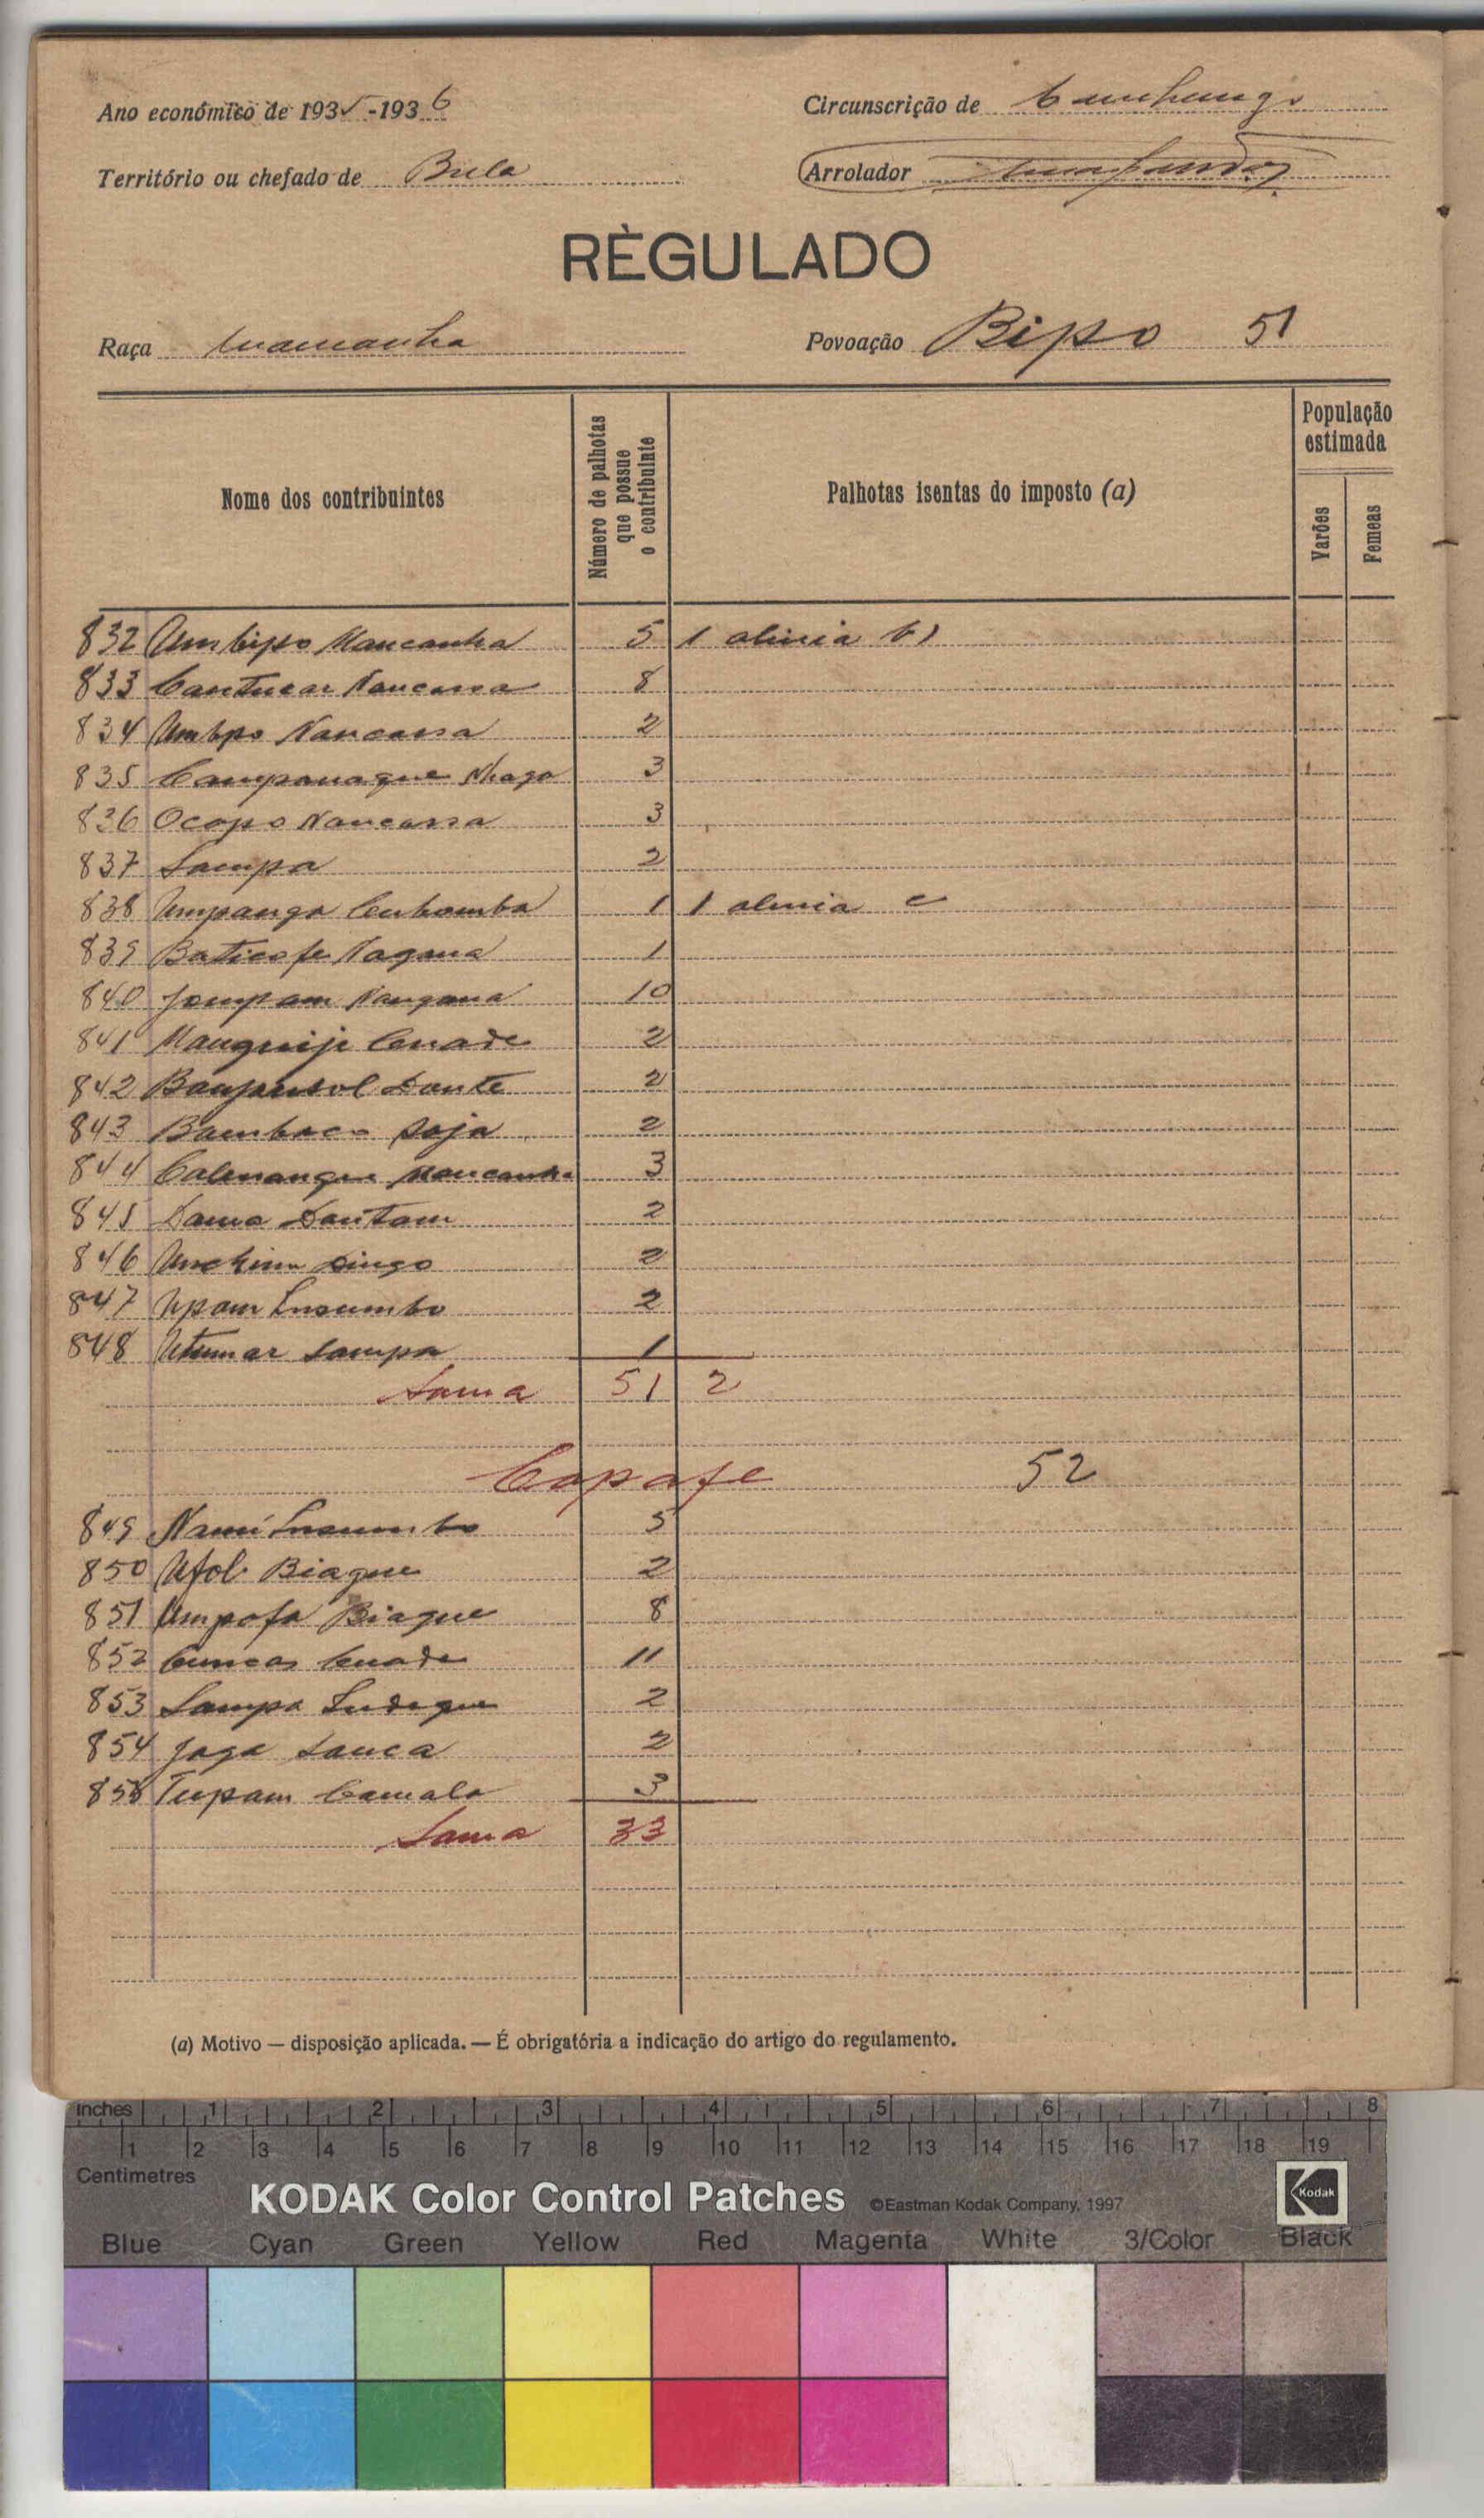 Ano económico de 1935-1936
Circunscrição de
Território ou chefado de Bula
Arrolador
RÈGULADO
Raça Mancanha
Povoação Bipo 51
Nome dos contribuintes
Número de palhotas que possue o contribuinte
Palhotas isentas do imposto (a)
População estimada
Varões
Femeas
832 Umbipo Mancanha 5 1 alinia b)
833 Cantucar Nancassa 8
834 Umbpo Nancassa 2
835 Campanaque 3
836 Ocopo Nancassa 3
837 Sampa 2
838 Umpanga Cubomba 1 1 alinia c
839 Baticofe Nagana 1
840 Jompam Nangana 10
841 Manguiji Cuade 2
842 Dante 2
843 Bamboco Soja 2
844 Mancanha 3
845 Dama Dantam 2
846 Dingo 2
847 Upam Insumbo 2
848 Sampa 1
Soma 51 2
Copafe 52
849 Insumbo 5
850 Ufol Biague 2
851 Umpofa Biague 8
852 Cuncas Cuade 11
853 Sampa Indeque 2
854 Joga Sanca 2
855 Tupam Camala 3
Soma 33
(a) Motivo — disposição aplicada. — É obrigatória a indicação do artigo do regulamento.
inches 1 2 3 4 5 6 7 8
1 2 3 4 5 6 7 8 9 10 11 12 13 14 15 16 17 18 19
Centimetres
KODAK Color Control Patches ©Eastman Kodak Company, 1997
Kodak
Blue Cyan Green Yellow Red Magenta White 3/Color Black